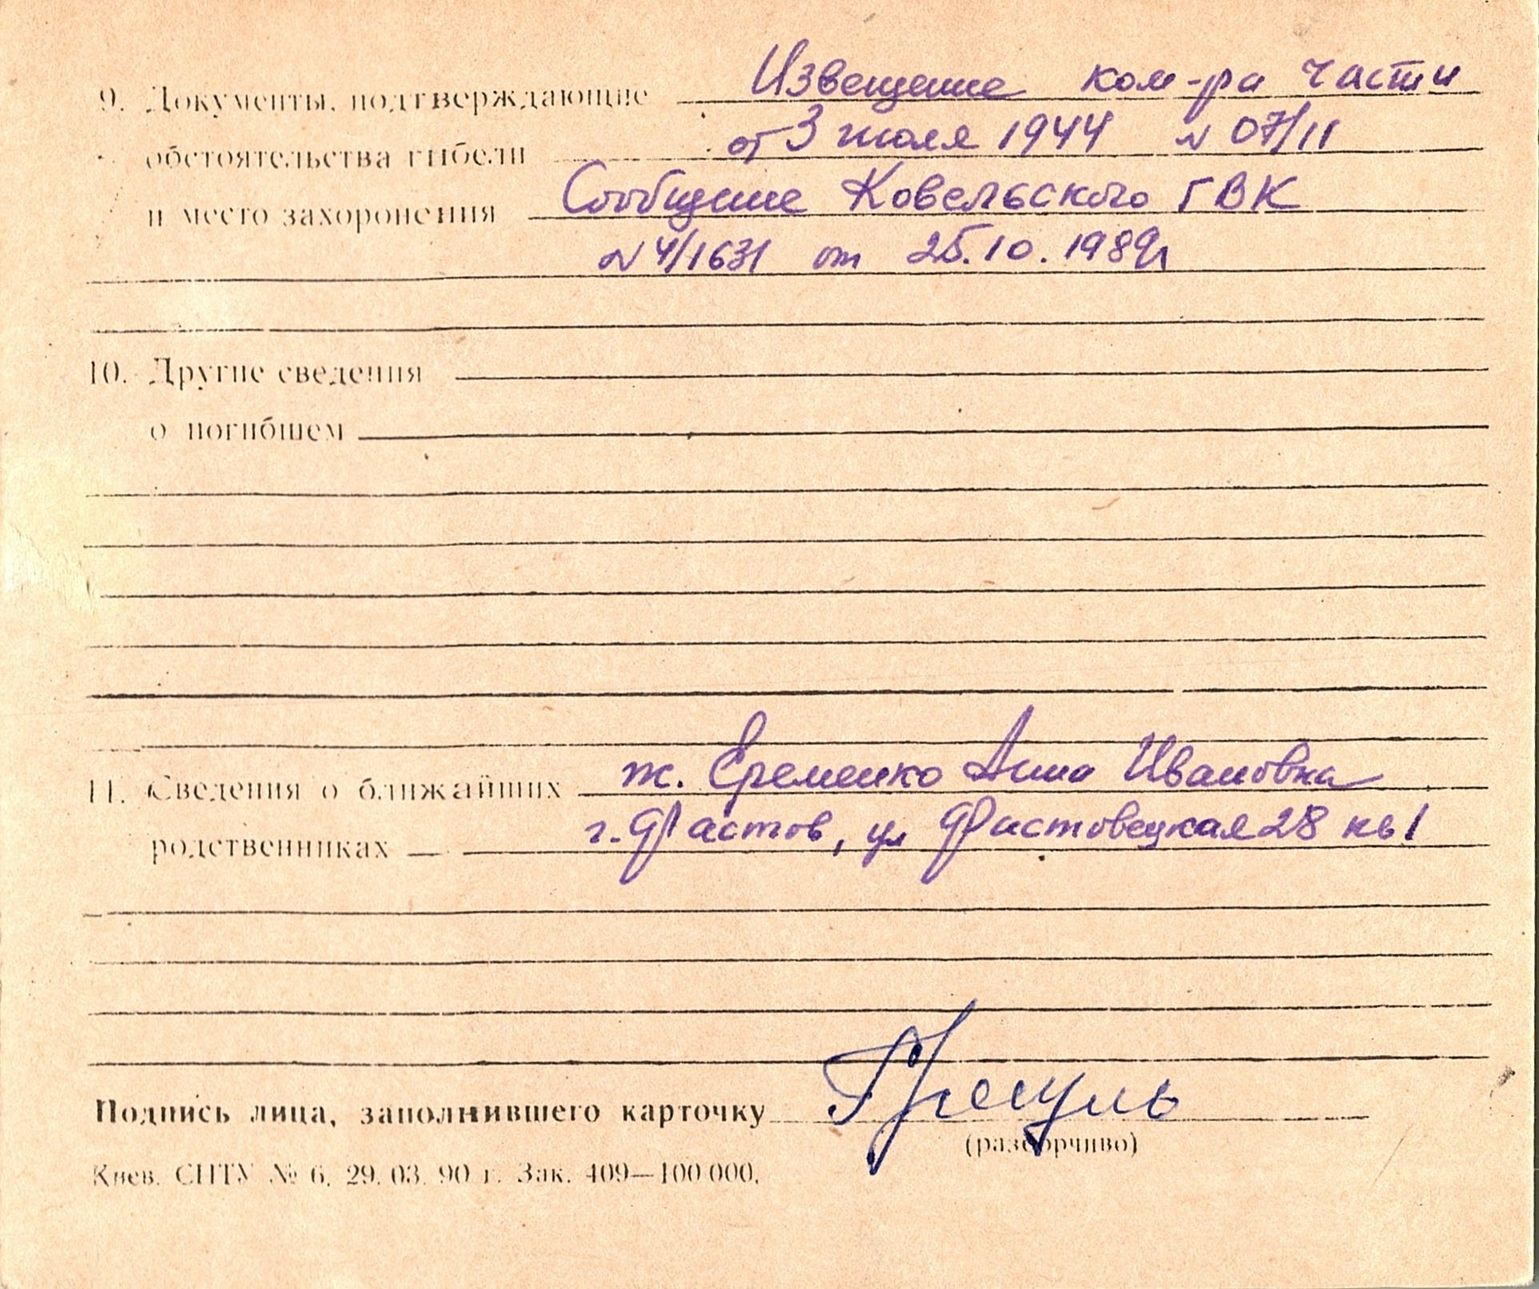 9. Документы, подтверждающие Извещение ком-ра части
обстоятельства гибели от 3 июля 1944 N 07/11
и место захоронения Сообщение Ковельского ГВК
N 4/1631 от 25.10.1989г
10. Другие сведения
о погибшем
11. Сведения о ближайших ж. Еременко Анна Ивановна
родственниках г. Фастов, ул Фастовецкая 28 кв 1
Подпись лица, заполнившего карточку
(разборчиво)
Киев. СПТУ № 6. 29. 03. 90 г. Зак. 409—100 000.